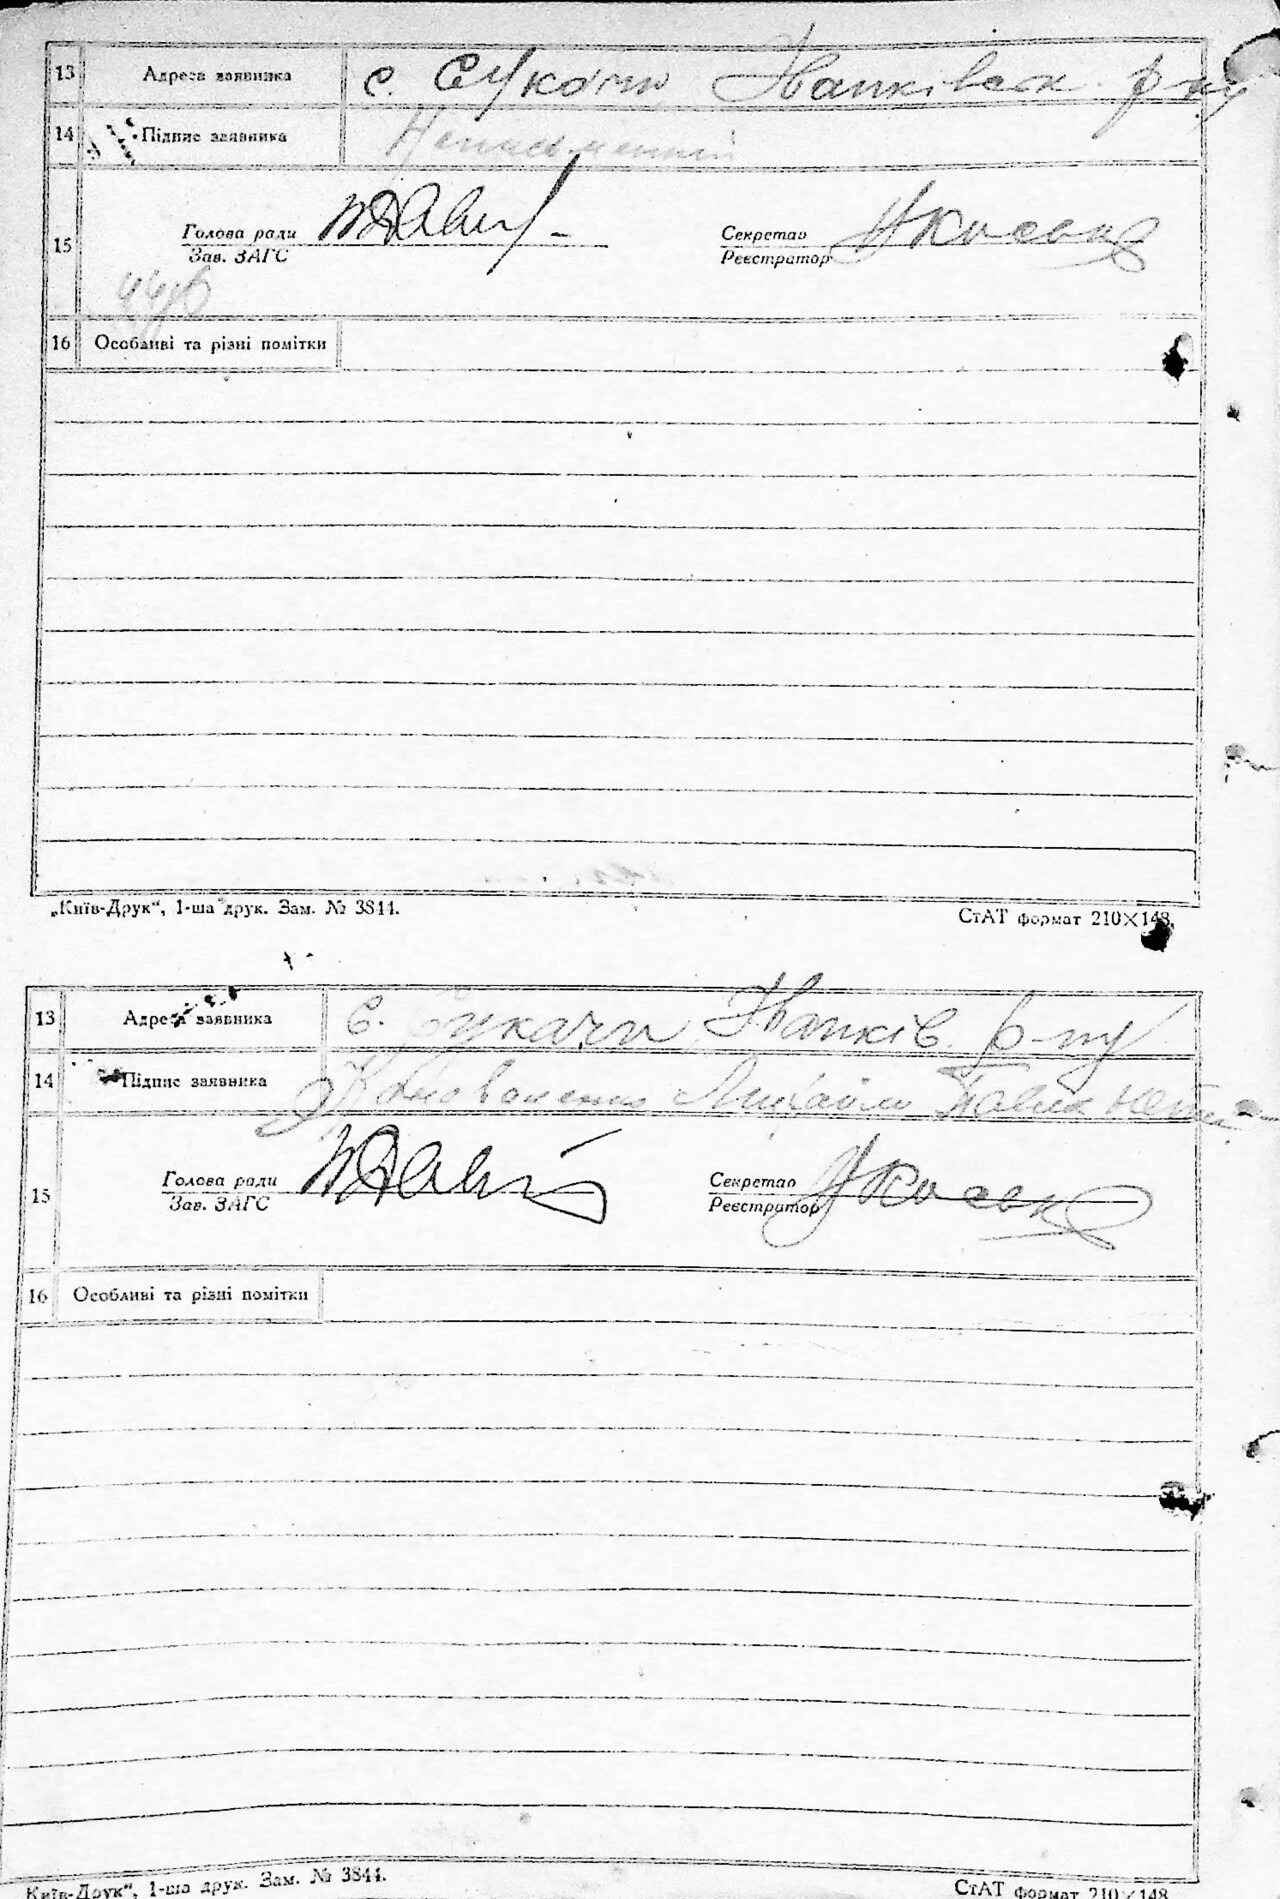 13 Адреса заявника с. Сукачи Іванківськ. р-ну
14 Підпис заявника Неписьменний
Голова ради Секретар
15
Зав. ЗАГС Реєстратор
16 Особливі та різні помітки
„Київ-Друк“, 1-ша друк. Зам. № 3844. СтАТ формат 210×148.
13 Адреса заявника с. Сукачи Іванків. р-ну
14 Підпис заявника Михайло
Голова ради Секретар
15
Зав. ЗАГС Реєстратор
16 Особливі та різні помітки
Київ-Друк“, 1-ша друк. Зам. № 3844. СтАТ формат 210×148